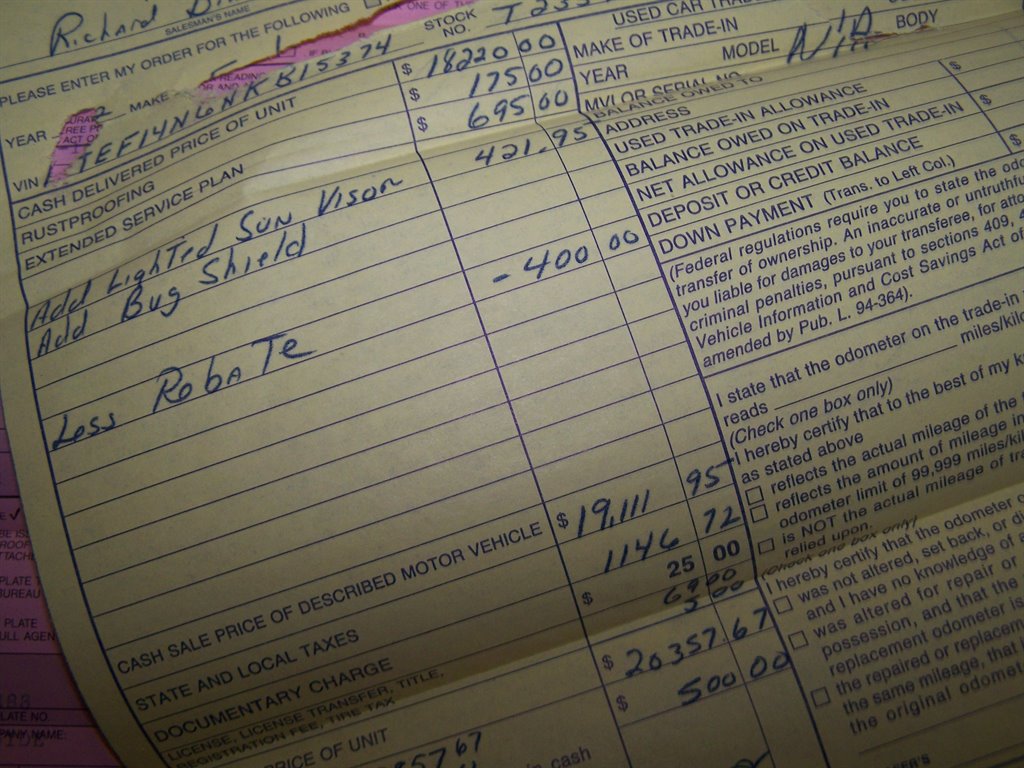 Richard
SALESMAN'S NAME
PLEASE ENTER MY ORDER FOR THE FOLLOWING
STOCK NO.
YEAR 2 MAKE
VIN 1TEF14N6NKB15374
CASH DELIVERED PRICE OF UNIT $ 18220 00
RUSTPROOFING $ 175 00
EXTENDED SERVICE PLAN $ 695 00
Add Lighted Sun Vison 421.95
Add Bug Shield
Less RobaTe - 400 00
CASH SALE PRICE OF DESCRIBED MOTOR VEHICLE $ 19,111 95
STATE AND LOCAL TAXES 1146 72
DOCUMENTARY CHARGE 25 00
LICENSE, LICENSE TRANSFER, TITLE,
REGISTRATION FEE, TIRE TAX $
$ 20357.67
PRICE OF UNIT $ 500 00
cash
USED CAR
MAKE OF TRADE-IN
YEAR MODEL N/A BODY
MVI OR SERIAL NO.
BALANCE OWED TO
ADDRESS
USED TRADE-IN ALLOWANCE $
BALANCE OWED ON TRADE-IN
NET ALLOWANCE ON USED TRADE-IN $
DEPOSIT OR CREDIT BALANCE
DOWN PAYMENT (Trans. to Left Col.) $
(Federal regulations require you to state the
transfer of ownership. An inaccurate or
you liable for damages to your transferee, for
criminal penalties, pursuant to sections 409,
Vehicle Information and Cost Savings Act of
amended by Pub. L. 94-364).
I state that the odometer on the trade-in
reads miles/
(Check one box only)
I hereby certify that to the best of my
as stated above
reflects the actual mileage of the
reflects the amount of mileage in
odometer limit of 99,999 miles/
is NOT the actual mileage of
relied upon.
(Check one box only)
I hereby certify that the odometer
was not altered, set back, or
and I have no knowledge of
was altered for repair or
possession, and that the
replacement odometer is
the repaired or
the same mileage, that
the original